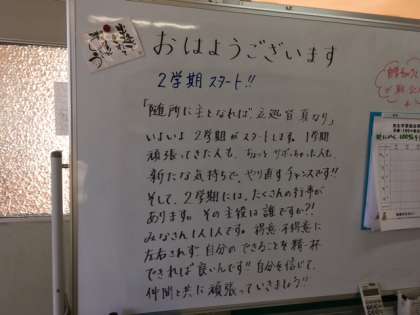 おはようございます
2学期スタート!!
「随所に主となれば、立処皆真なり」
いよいよ2学期がスタートします。1学期
頑張ってきた人も、ちょっとサボっちゃった人も
新たな気持ちで、やり直すチャンスです!!
そして、2学期には、たくさんの行事が
あります。その主役は誰ですか?!
みなさん1人1人です。得意不得意に
左右されず自分のできることを精一杯
できれば良いんです!!自分を信じて、
仲間と共に頑張っていきましょう!!
100%